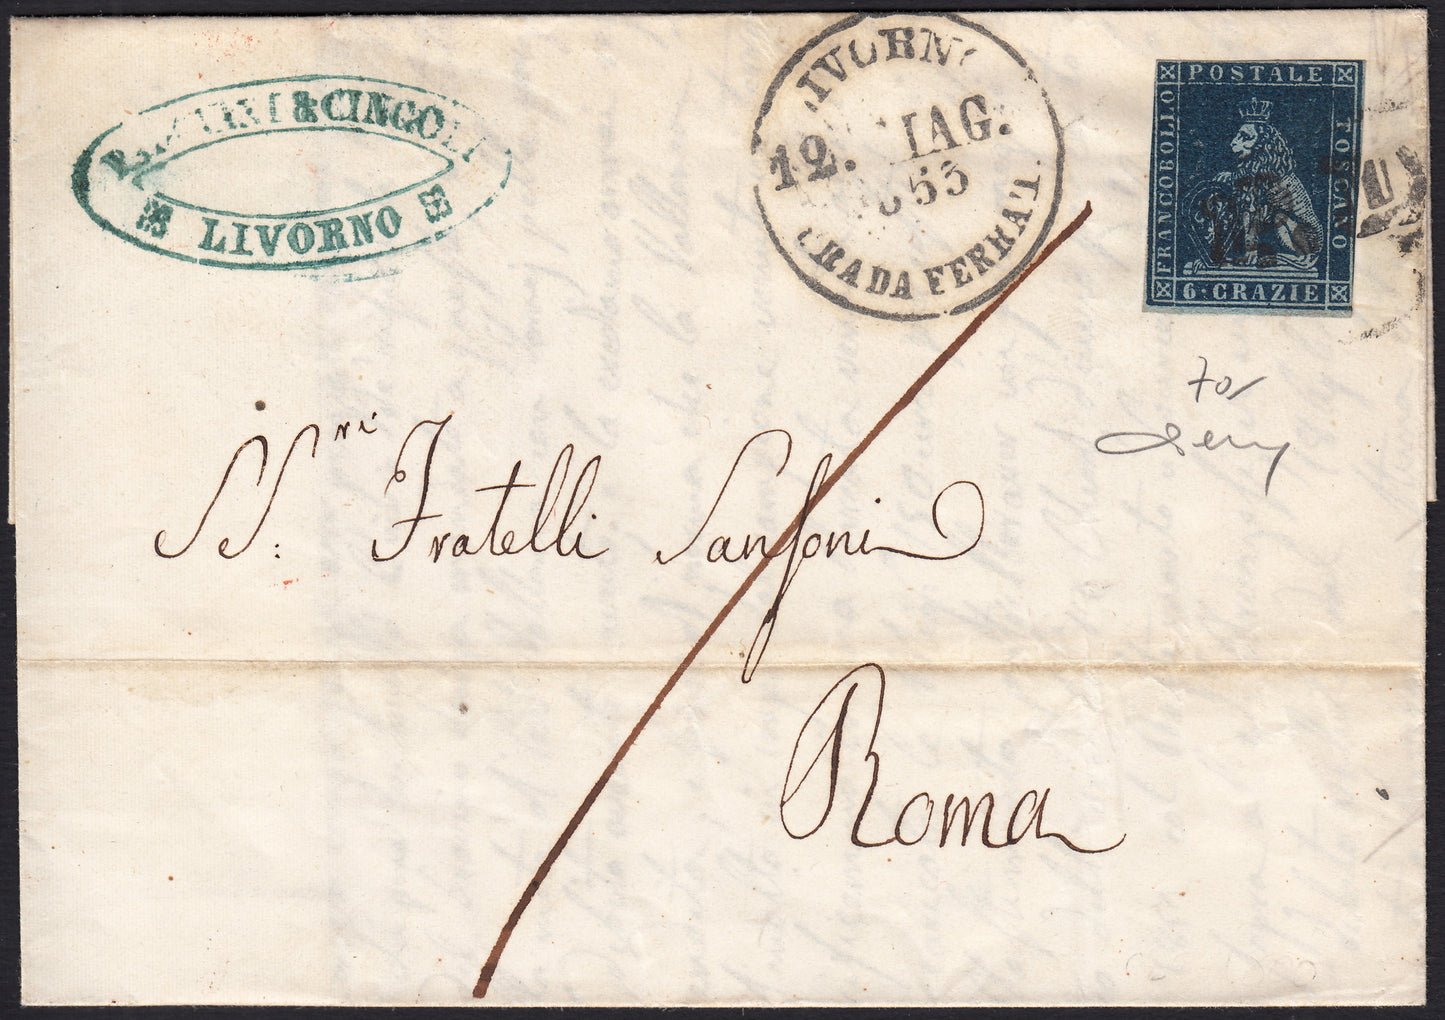 & CINGOLI
LIVORNO
LIVORNO
12. MAG.
1853
STRADA FERRAT.
POSTALE
FRANCOBOLLO
TOSCANO
6·CRAZIE
70
SS.ri Fratelli Sansoni
Roma